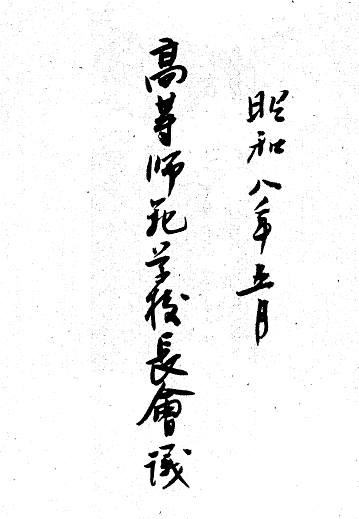 昭和八年五月
高等師範学校長會議